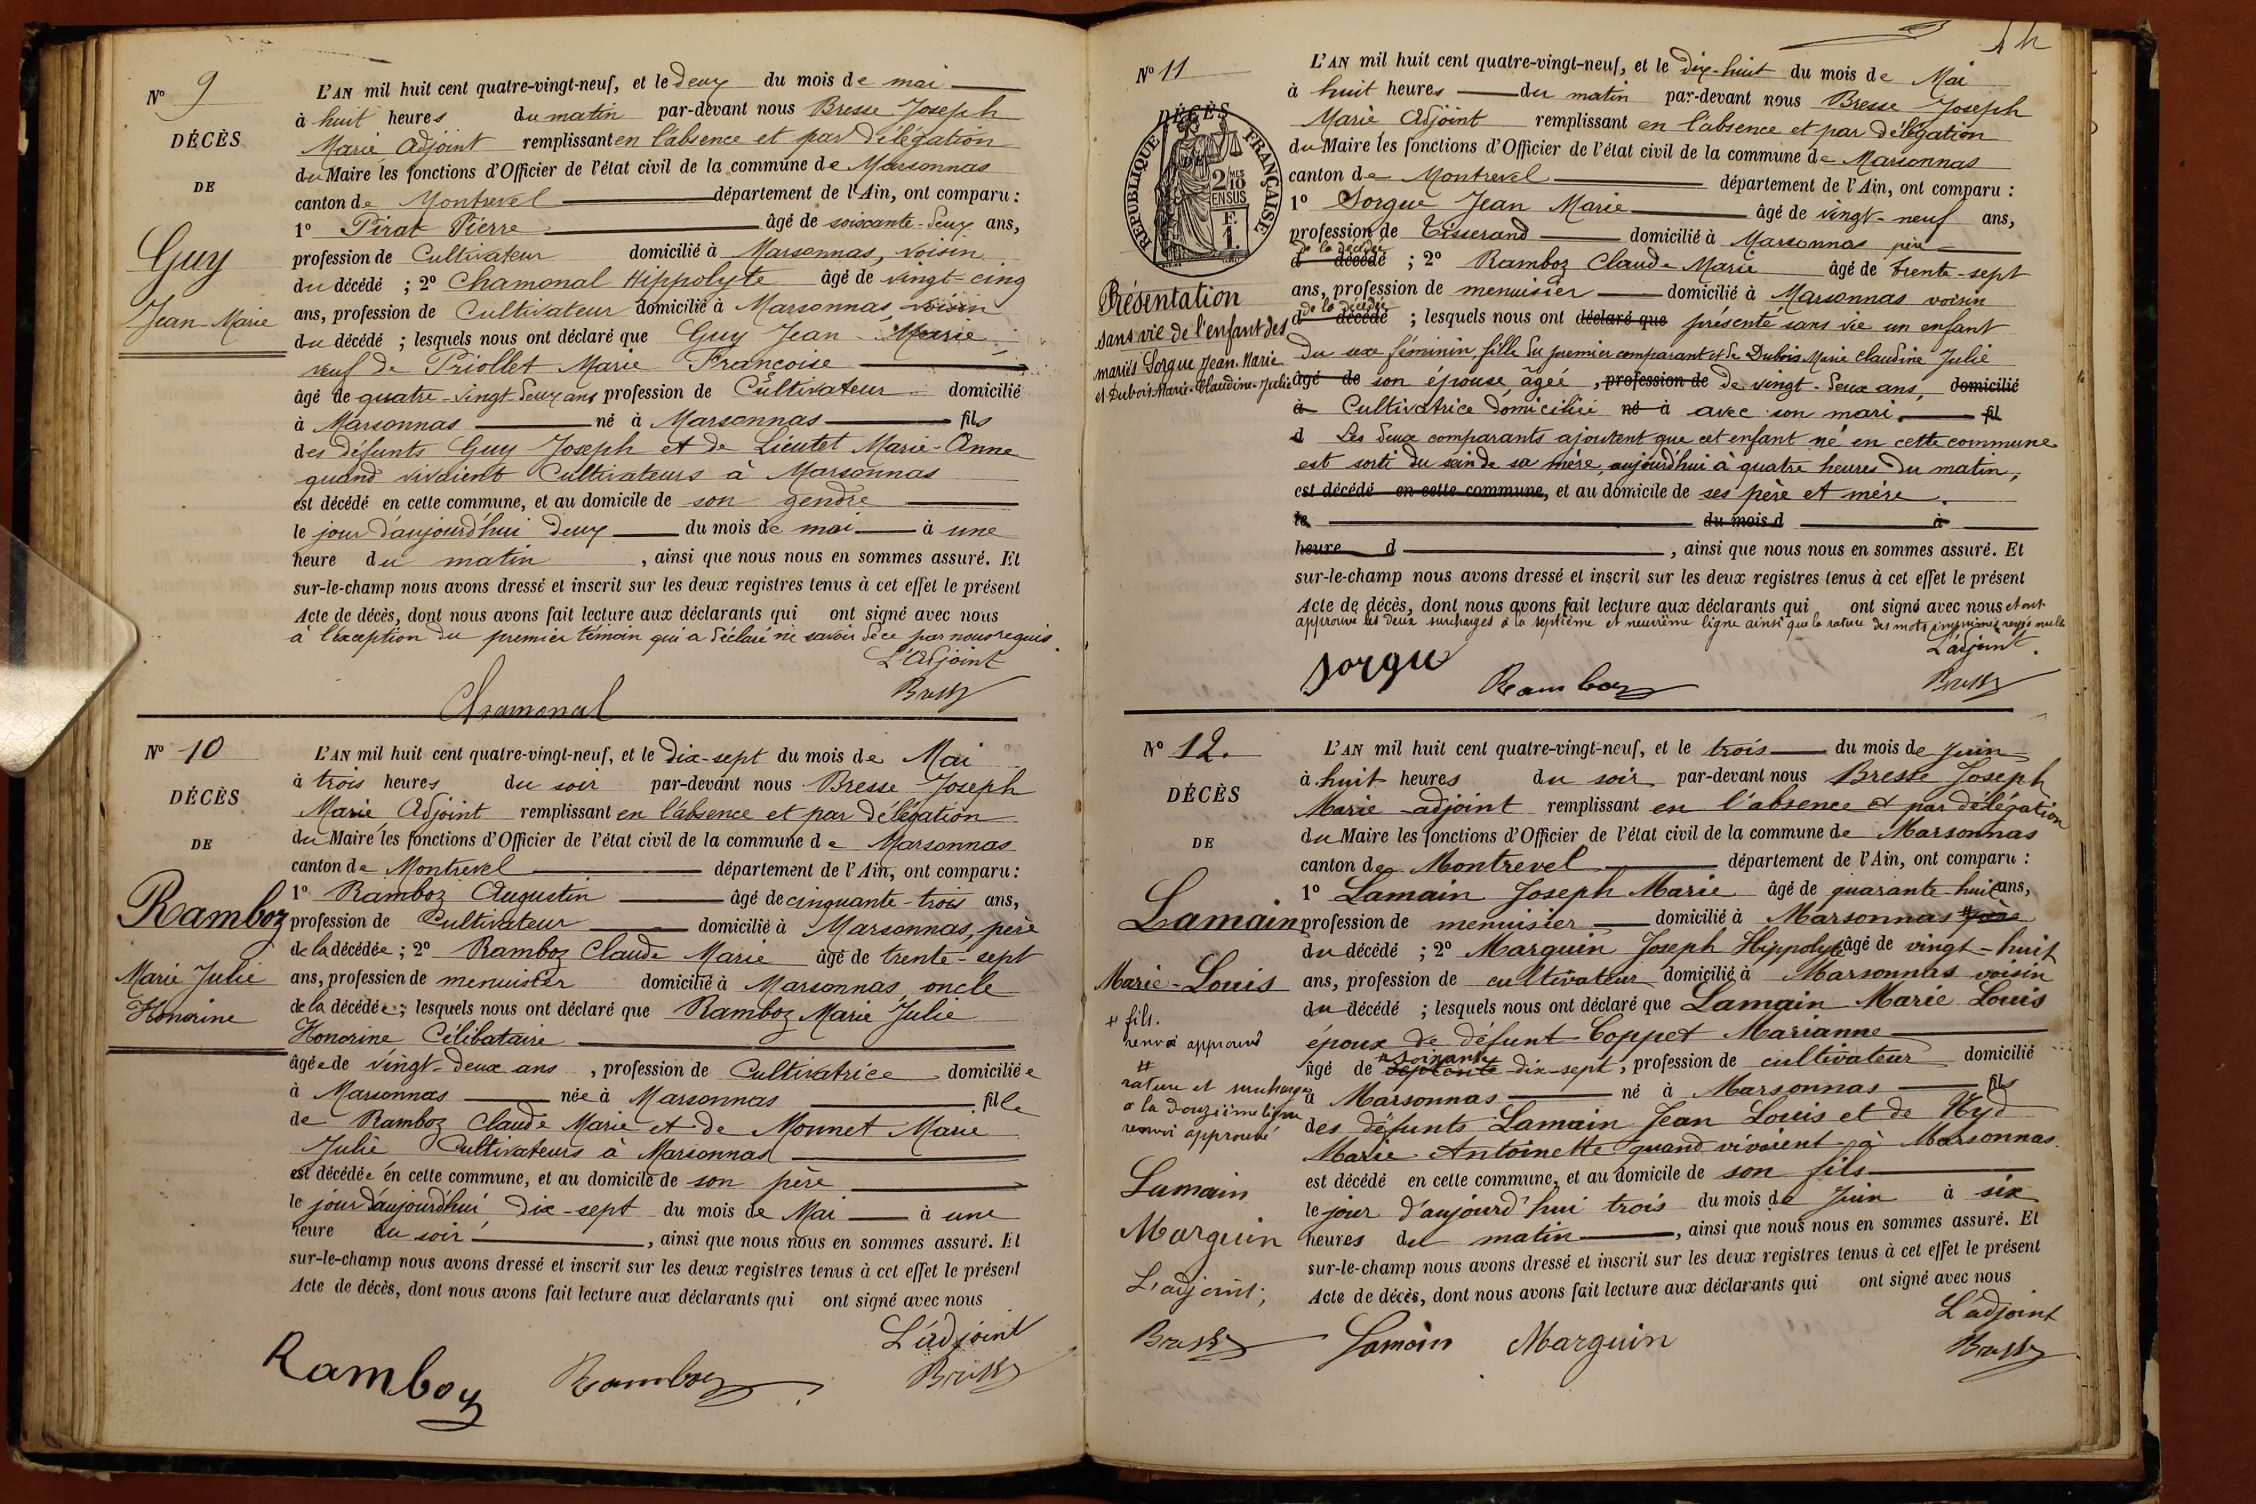 N° 9
DÉCÈS
DE
Guy
Jean-Marie
L'AN mil huit cent quatre-vingt-neuf, et le deux du mois de mai
à huit heures du matin par-devant nous Bresse Joseph
Marie Adjoint remplissant en l'absence et par délégation
du Maire les fonctions d'Officier de l'état civil de la commune de Marsonnas
canton de Montrevel département de l'Ain, ont comparu :
1° Pirat Pierre âgé de soixante-deux ans,
profession de Cultivateur domicilié à Marsonnas, voisin
du décédé ; 2° Chamonal Hippolyte âgé de vingt-cinq
ans, profession de Cultivateur domicilié à Marsonnas, voisin
du décédé ; lesquels nous ont déclaré que Guy Jean-Marie
veuf de Priollet Marie Françoise
âgé de quatre-vingt deux ans profession de Cultivateur domicilié
à Marsonnas né à Marsonnas fils
des défunts Guy Joseph et de Lieutet Marie-Anne
quand vivaient Cultivateurs à Marsonnas
est décédé en cette commune, et au domicile de son gendre
le jour d'aujourd'hui deux du mois de mai à une
heure du matin , ainsi que nous nous en sommes assuré. Et
sur-le-champ nous avons dressé et inscrit sur les deux registres tenus à cet effet le présent
Acte de décès, dont nous avons fait lecture aux déclarants qui ont signé avec nous
à l'exception du premier témoin qui a déclaré ne savoir de ce par nous requis.
L'Adjoint
Chamonal Bresse
N° 10
DÉCÈS
DE
Ramboz
Marie Julie
Honorine
L'AN mil huit cent quatre-vingt-neuf, et le dix-sept du mois de Mai
à trois heures du soir par-devant nous Bresse Joseph
Marie Adjoint remplissant en l'absence et par délégation
du Maire les fonctions d'Officier de l'état civil de la commune de Marsonnas
canton de Montrevel département de l'Ain, ont comparu :
1° Ramboz Augustin âgé de cinquante-trois ans,
profession de Cultivateur domicilié à Marsonnas, père
de la décédée ; 2° Ramboz Claude Marie âgé de trente-sept
ans, profession de menuisier domicilié à Marsonnas oncle
de la décédée ; lesquels nous ont déclaré que Ramboz Marie Julie
Honorine Célibataire
âgée de vingt-deux ans , profession de Cultivatrice domiciliée
à Marsonnas née à Marsonnas fille
de Ramboz Claude Marie et de Monnet Marie
Julie Cultivateurs à Marsonnas
est décédée en cette commune, et au domicile de son père
le jour d'aujourd'hui dix-sept du mois de Mai à une
heure du soir , ainsi que nous nous en sommes assuré. Et
sur-le-champ nous avons dressé et inscrit sur les deux registres tenus à cet effet le présent
Acte de décès, dont nous avons fait lecture aux déclarants qui ont signé avec nous
L'adjoint
Ramboz Ramboz Bresse
N° 11
DÉCÈS
RÉPUBLIQUE FRANÇAISE
2 MES
10
EN SUS
F.
1.
Présentation
sans vie de l'enfant des
mariés Sorgue Jean-Marie
et Dubois Marie-Claudine-Julie
L'AN mil huit cent quatre-vingt-neuf, et le dix-huit du mois de Mai
à huit heures du matin par-devant nous Bresse Joseph
Marie Adjoint remplissant en l'absence et par délégation
du Maire les fonctions d'Officier de l'état civil de la commune de Marsonnas
canton de Montrevel département de l'Ain, ont comparu :
1° Sorgue Jean Marie âgé de vingt-neuf ans,
profession de Tisserand domicilié à Marsonnas père
de la décédée
d décédé ; 2° Ramboz Claude Marie âgé de trente-sept
ans, profession de menuisier domicilié à Marsonnas voisin
de la décédée
d décédé ; lesquels nous ont déclaré que présenté sans vie un enfant
du sexe féminin fille du premier comparant et de Dubois Marie Claudine Julie
âgé de son épouse, âgée , profession de de vingt-deux ans, domicilié
à Cultivatrice domiciliée né à avec son mari fil
d Les deux comparants ajoutent que cet enfant né en cette commune
est sorti du sein de sa mère, aujourd'hui à quatre heures du matin,
est décédé en cette commune, et au domicile de ses père et mère.
le du mois d à
heure d , ainsi que nous nous en sommes assuré. Et
sur-le-champ nous avons dressé et inscrit sur les deux registres tenus à cet effet le présent
Acte de décès, dont nous avons fait lecture aux déclarants qui ont signé avec nous et ont
approuvé les deux surcharges à la septième et neuvième ligne ainsi que la rature des mots imprimés rayés nulle
L'adjoint.
Sorgue Ramboz Bresse
N° 12.
DÉCÈS
DE
Lamain
Marie-Louis
# fils.
renvoi approuvé
#
rature et surcharge
à la douzième ligne
renvoi approuvé
Lamain
Marguin
L'adjoint;
Bresse
L'AN mil huit cent quatre-vingt-neuf, et le trois du mois de Juin
à huit heures du soir par-devant nous Bresse Joseph
Marie adjoint remplissant en l'absence et par délégation
du Maire les fonctions d'Officier de l'état civil de la commune de Marsonnas
canton de Montrevel département de l'Ain, ont comparu :
1° Lamain Joseph Marie âgé de quarante-huit ans,
profession de menuisier domicilié à Marsonnas # père
du décédé ; 2° Marguin Joseph Hippolyte âgé de vingt-huit
ans, profession de cultivateur domicilié à Marsonnas voisin
du décédé ; lesquels nous ont déclaré que Lamain Marie Louis
époux de défunt Coppet Marianne
# soixante
âgé de septente-dix-sept, profession de cultivateur domicilié
à Marsonnas né à Marsonnas fils
des défunts Lamain Jean Louis et de Nyd
Marie Antoinette quand vivaient à Marsonnas
est décédé en cette commune, et au domicile de son fils
le jour d'aujourd'hui trois du mois de Juin à six
heures du matin , ainsi que nous nous en sommes assuré. Et
sur-le-champ nous avons dressé et inscrit sur les deux registres tenus à cet effet le présent
Acte de décès, dont nous avons fait lecture aux déclarants qui ont signé avec nous
L'adjoint
Lamain Marguin Bresse